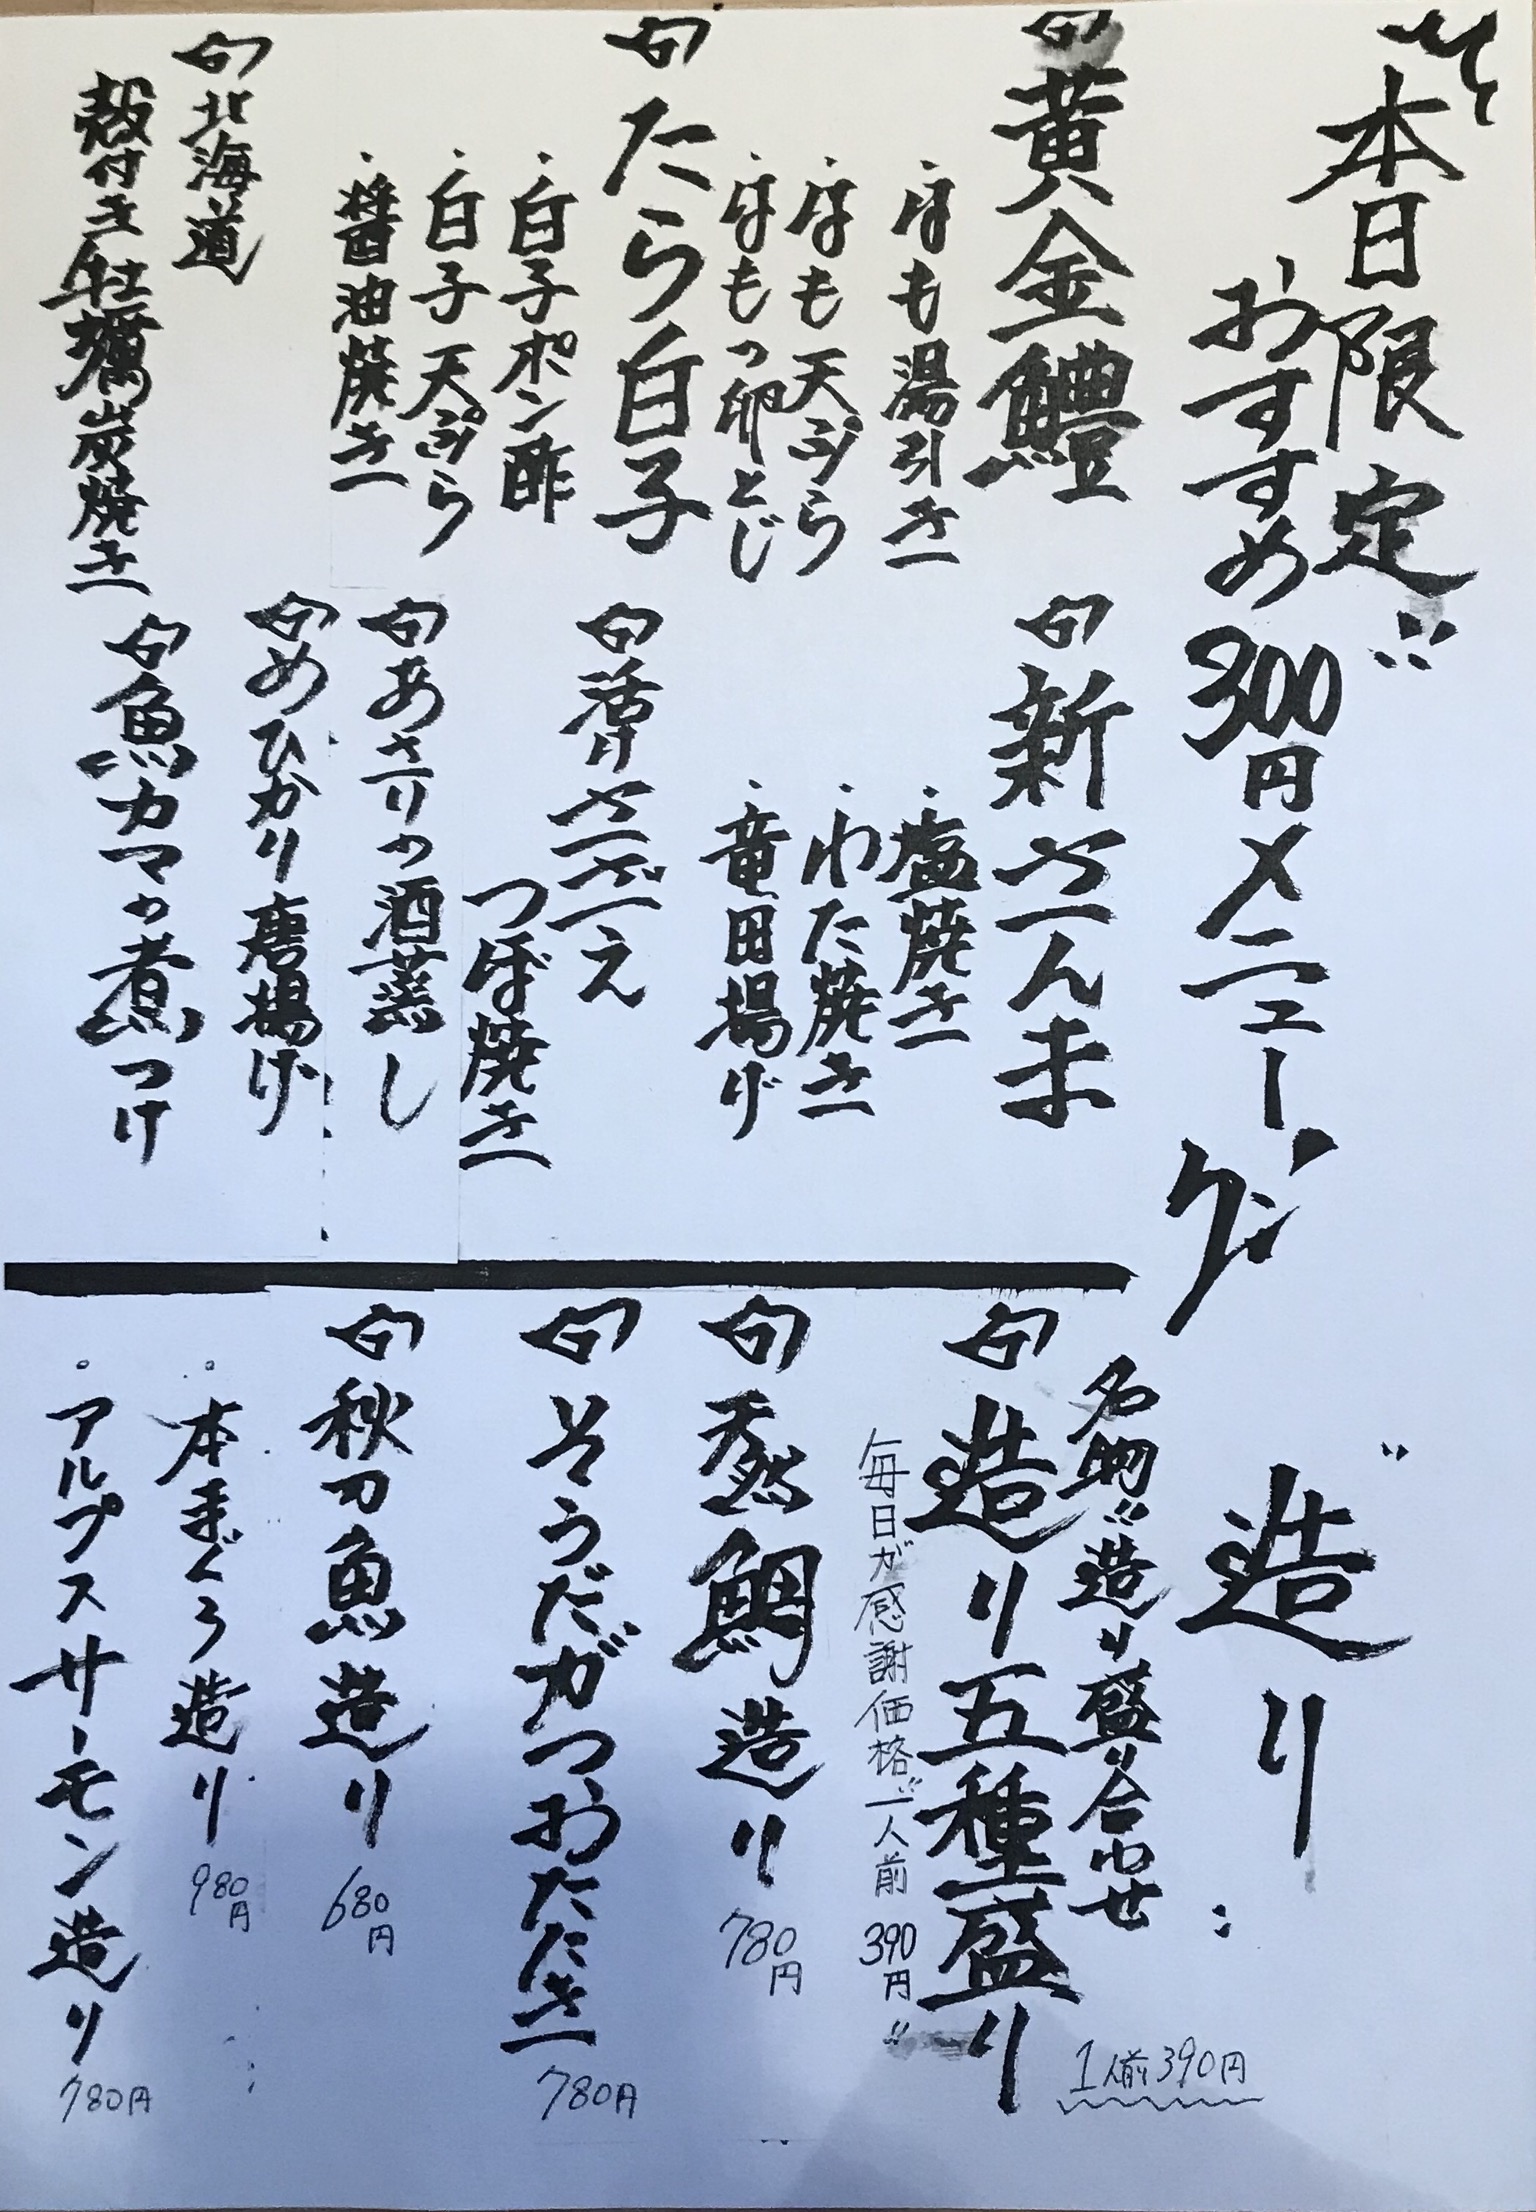 本日限定!!
おすすめ300円メニュー
旬黄金鱧
・はも湯引き
・はも天ぷら
・はもの卵とじ
旬たら白子
・白子ポン酢
・白子天ぷら
・醤油焼き
旬北海道
殻付き牡蠣炭焼き
旬新さんま
・塩焼き
・わた焼き
・竜田揚げ
旬活けさざえ
つぼ焼き
旬あさりの酒蒸し
旬めひかり唐揚げ
旬魚カマの煮つけ
造り
名物!!造り盛り合わせ
1人前390円
旬造り五種盛り
毎日が感謝価格!!一人前390円!!
旬天然鯛造り780円
旬そうだガつおたたき780円
旬秋刀魚造り680円
・本まぐろ造り980円
・アルプスサーモン造り780円